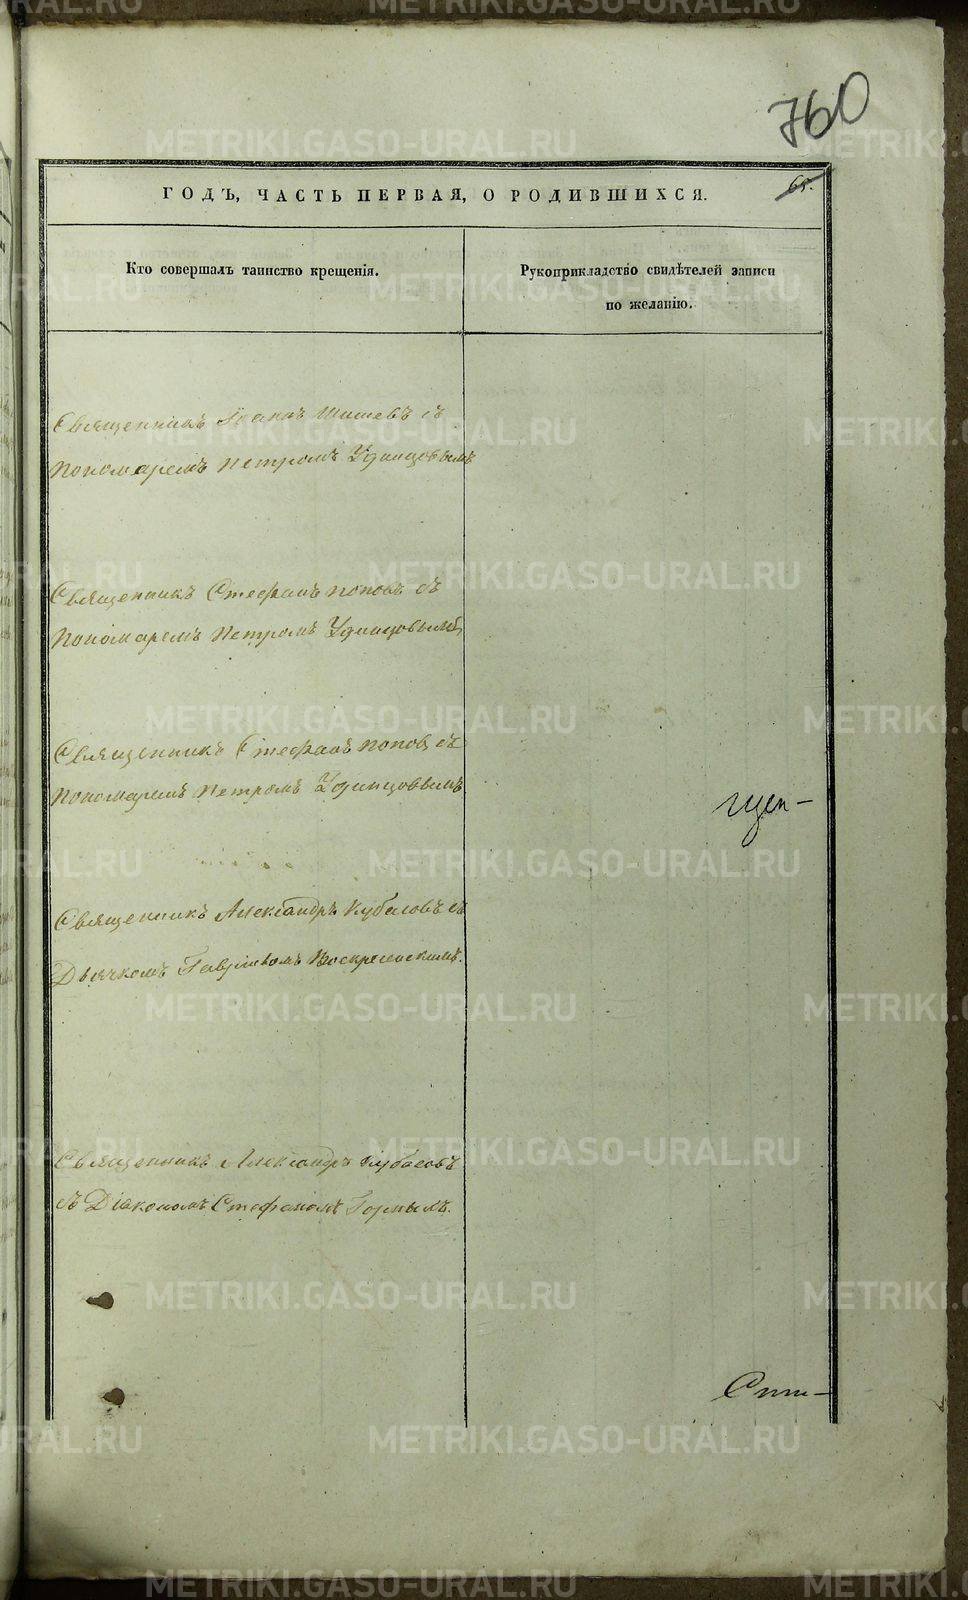 760
ГОДЪ, ЧАСТЬ ПЕРВАЯ, О РОДИВШИХСЯ.
65.
Кто совершалъ таинство крещенія.
Рукоприкладство свидѣтелей записи
по желанію.
Священникъ Іоаннъ Шишевъ съ
Пономаремъ Петромъ Удинцовымъ
Священникъ Стефанъ Поповъ съ
Пономаремъ Петромъ Удинцовымъ
Священникъ Стефанъ Поповъ съ
Пономаремъ Петромъ Удинцовымъ
Священникъ Александръ Кубасовъ съ
Дьячкомъ Гавріиломъ Воскресенскимъ.
Священникъ Александръ Кубасовъ
съ Діакономъ Стефаномъ Горнымъ.
METRIKI.GASO-URAL.RU